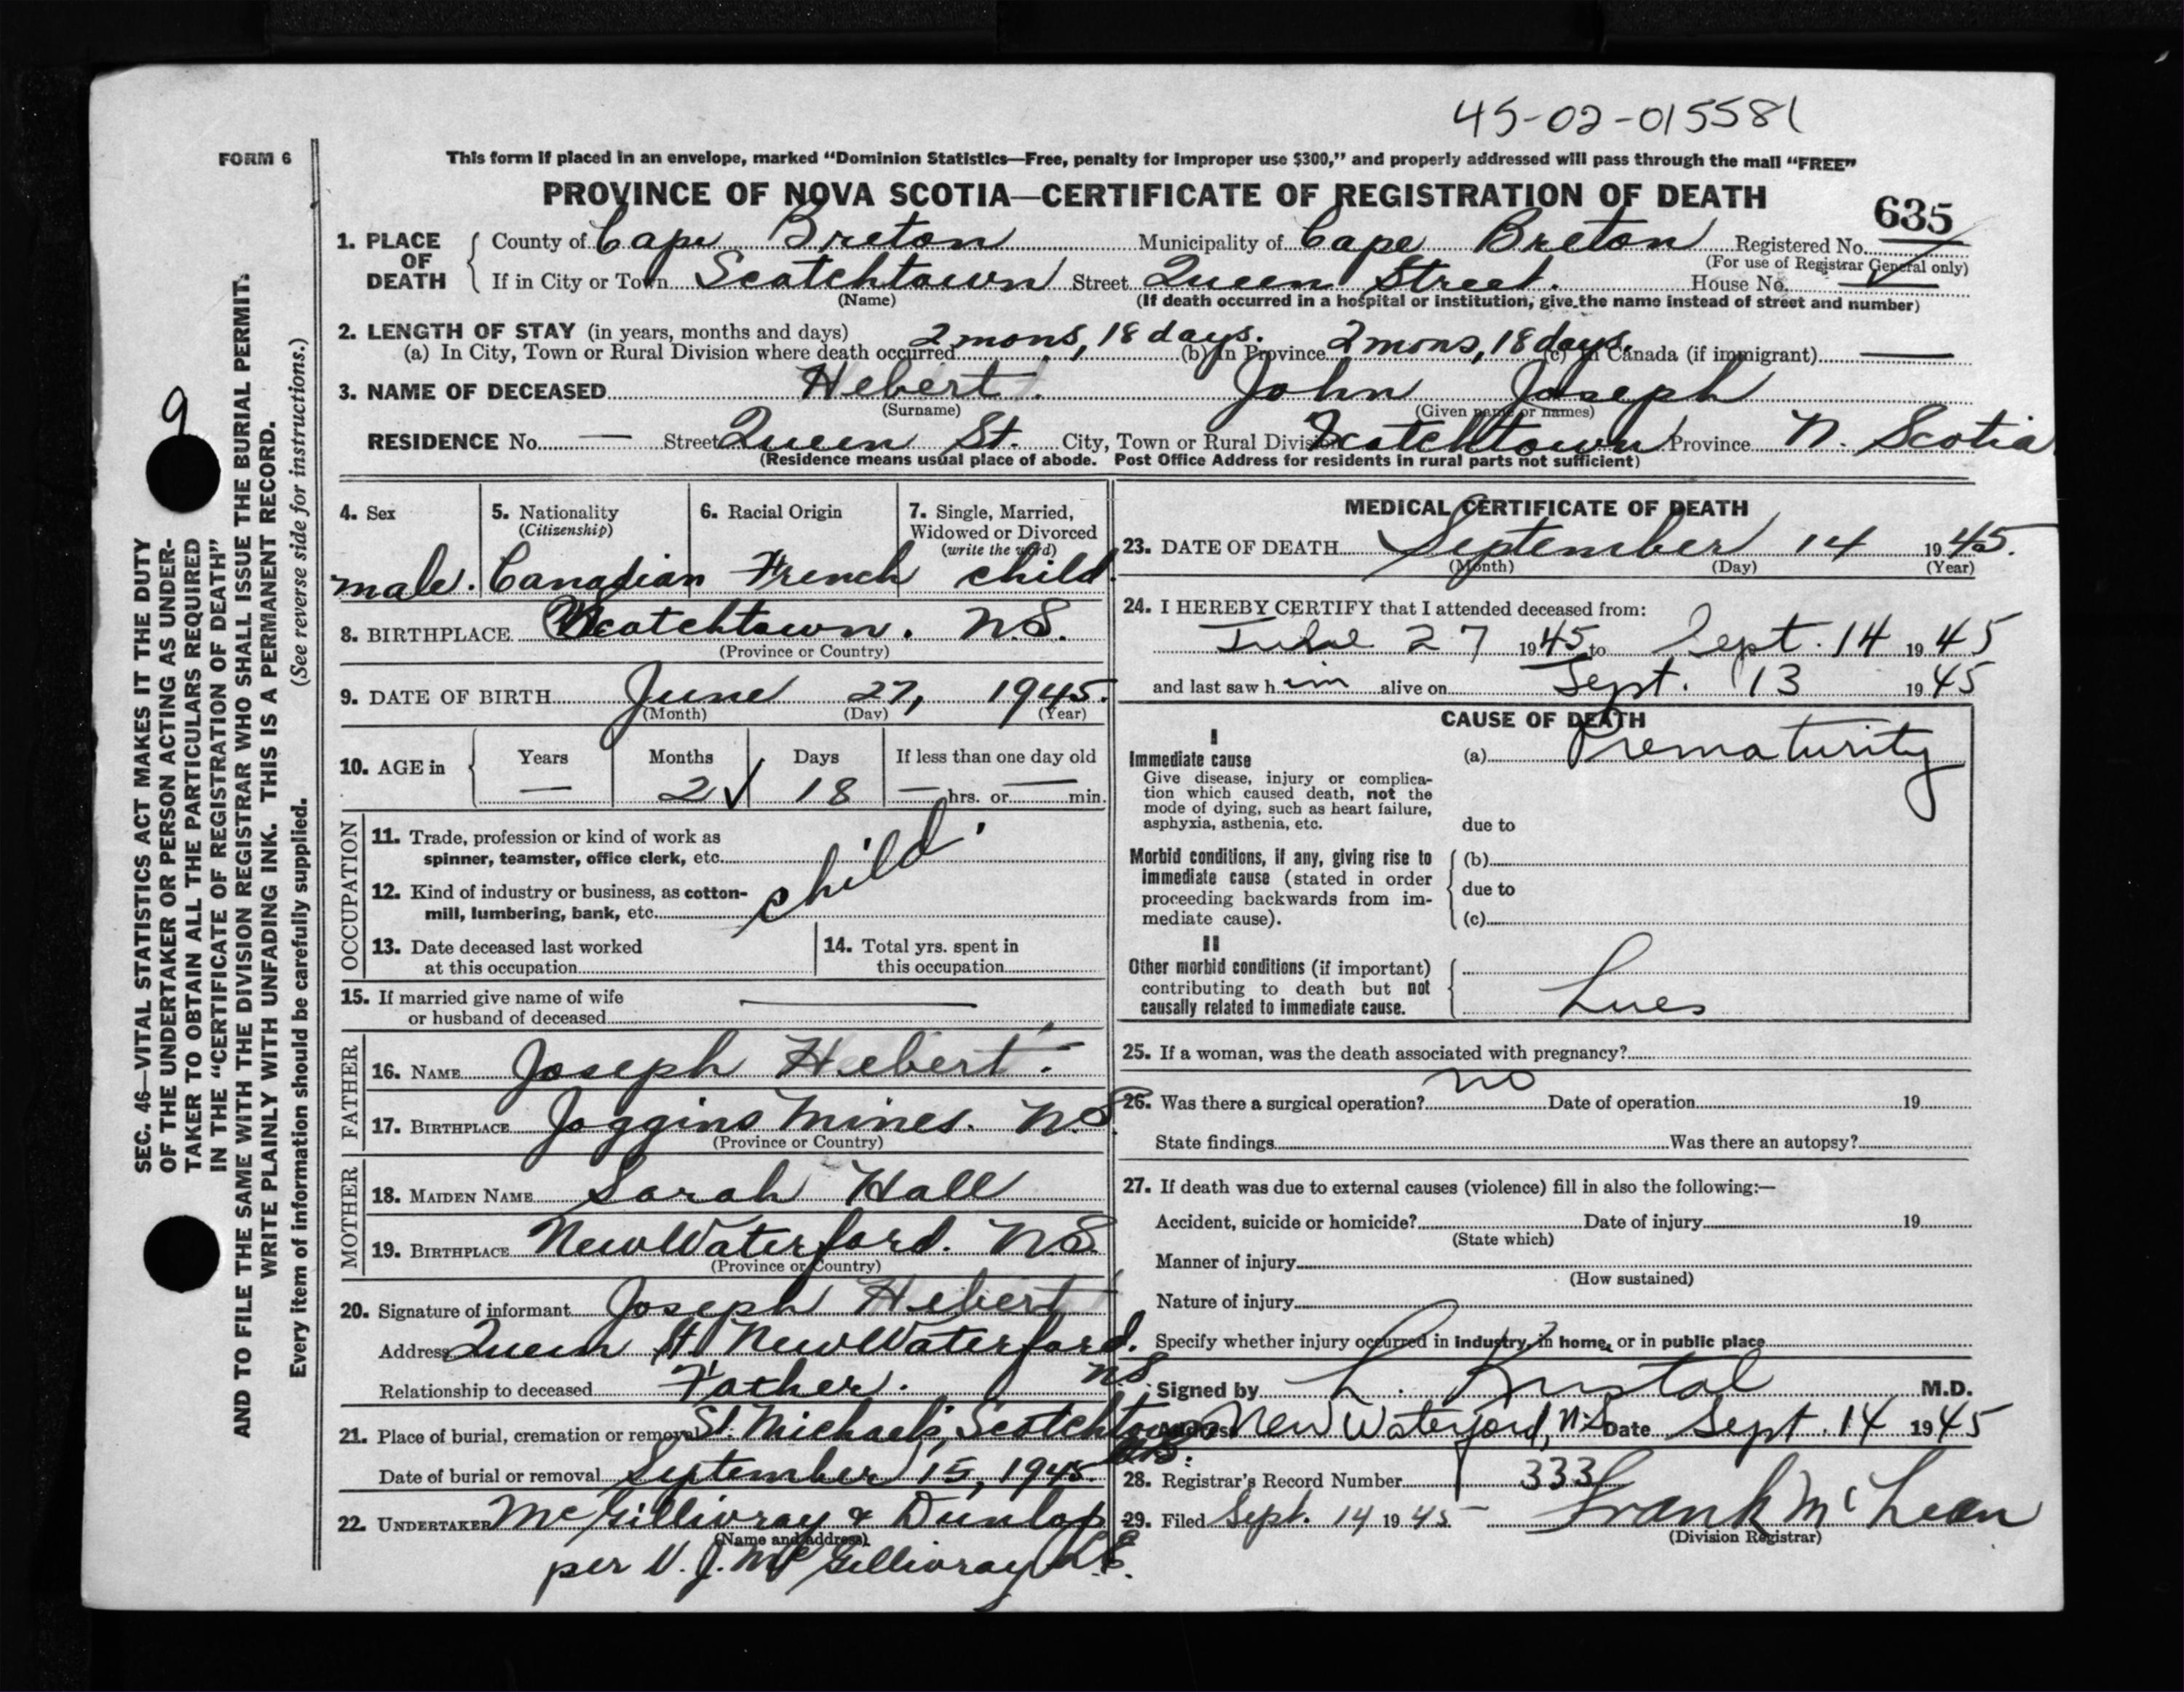 45-02-015581
FORM 6
This form if placed in an envelope, marked "Dominion Statistics—Free, penalty for improper use $300," and properly addressed will pass through the mail "FREE"
PROVINCE OF NOVA SCOTIA—CERTIFICATE OF REGISTRATION OF DEATH
635
1. PLACE OF DEATH County of Cape Breton Municipality of Cape Breton Registered No.
(For use of Registrar General only)
If in City or Town Scotchtown Street Queen Street. House No. —
(Name) (If death occurred in a hospital or institution, give the name instead of street and number)
2. LENGTH OF STAY (in years, months and days)
(a) In City, Town or Rural Division where death occurred 2 mons, 18 days. (b) In Province 2 mons, 18 days. (c) In Canada (if immigrant) —
3. NAME OF DECEASED Hebert. John Joseph
(Surname) (Given name or names)
RESIDENCE No. — Street Queen St. City, Town or Rural Division Scotchtown Province N. Scotia
(Residence means usual place of abode. Post Office Address for residents in rural parts not sufficient)
4. Sex 5. Nationality 6. Racial Origin 7. Single, Married,
(Citizenship) Widowed or Divorced
(write the word)
male. Canadian French child.
8. BIRTHPLACE Scotchtown. N.S.
(Province or Country)
9. DATE OF BIRTH June 27, 1945.
(Month) (Day) (Year)
10. AGE in Years Months Days If less than one day old
— 2 18 — hrs. or — min.
OCCUPATION
11. Trade, profession or kind of work as
spinner, teamster, office clerk, etc.
child
12. Kind of industry or business, as cotton-
mill, lumbering, bank, etc.
13. Date deceased last worked
at this occupation
14. Total yrs. spent in
this occupation
15. If married give name of wife
or husband of deceased —
FATHER
16. NAME Joseph Hebert.
17. BIRTHPLACE Joggins Mines. N.S.
(Province or Country)
MOTHER
18. MAIDEN NAME Sarah Hall
19. BIRTHPLACE New Waterford. N.S.
(Province or Country)
20. Signature of informant Joseph Hebert
Address Queen St New Waterford. N.S.
Relationship to deceased Father.
21. Place of burial, cremation or removal St. Michael's, Scotchtown N.S.
Date of burial or removal September 15, 1945
22. UNDERTAKER McGillivray & Dunlop
(Name and address)
per V. J. McGillivray L.E.
MEDICAL CERTIFICATE OF DEATH
23. DATE OF DEATH September 14 1945.
(Month) (Day) (Year)
24. I HEREBY CERTIFY that I attended deceased from:
27 1945 to Sept. 14 1945
and last saw h im alive on Sept. 13 1945
CAUSE OF DEATH
I
Immediate cause
Give disease, injury or complica-
tion which caused death, not the
mode of dying, such as heart failure,
asphyxia, asthenia, etc.
(a) Prematurity
due to
Morbid conditions, if any, giving rise to
immediate cause (stated in order
proceeding backwards from im-
mediate cause).
(b)
due to
(c)
II
Other morbid conditions (if important)
contributing to death but not
causally related to immediate cause.
Lues
25. If a woman, was the death associated with pregnancy?
26. Was there a surgical operation? no Date of operation 19
State findings Was there an autopsy?
27. If death was due to external causes (violence) fill in also the following:—
Accident, suicide or homicide? Date of injury 19
(State which)
Manner of injury
(How sustained)
Nature of injury
Specify whether injury occurred in industry, in home, or in public place
Signed by L. Kristal M.D.
Address New Waterford, N.S. Date Sept. 14 1945
28. Registrar's Record Number 333
29. Filed Sept. 14 1945 Frank McLean
(Division Registrar)
9
SEC. 46—VITAL STATISTICS ACT MAKES IT THE DUTY
OF THE UNDERTAKER OR PERSON ACTING AS UNDER-
TAKER TO OBTAIN ALL THE PARTICULARS REQUIRED
IN THE "CERTIFICATE OF REGISTRATION OF DEATH"
AND TO FILE THE SAME WITH THE DIVISION REGISTRAR WHO SHALL ISSUE THE BURIAL PERMIT.
WRITE PLAINLY WITH UNFADING INK. THIS IS A PERMANENT RECORD.
Every item of information should be carefully supplied. (See reverse side for instructions.)